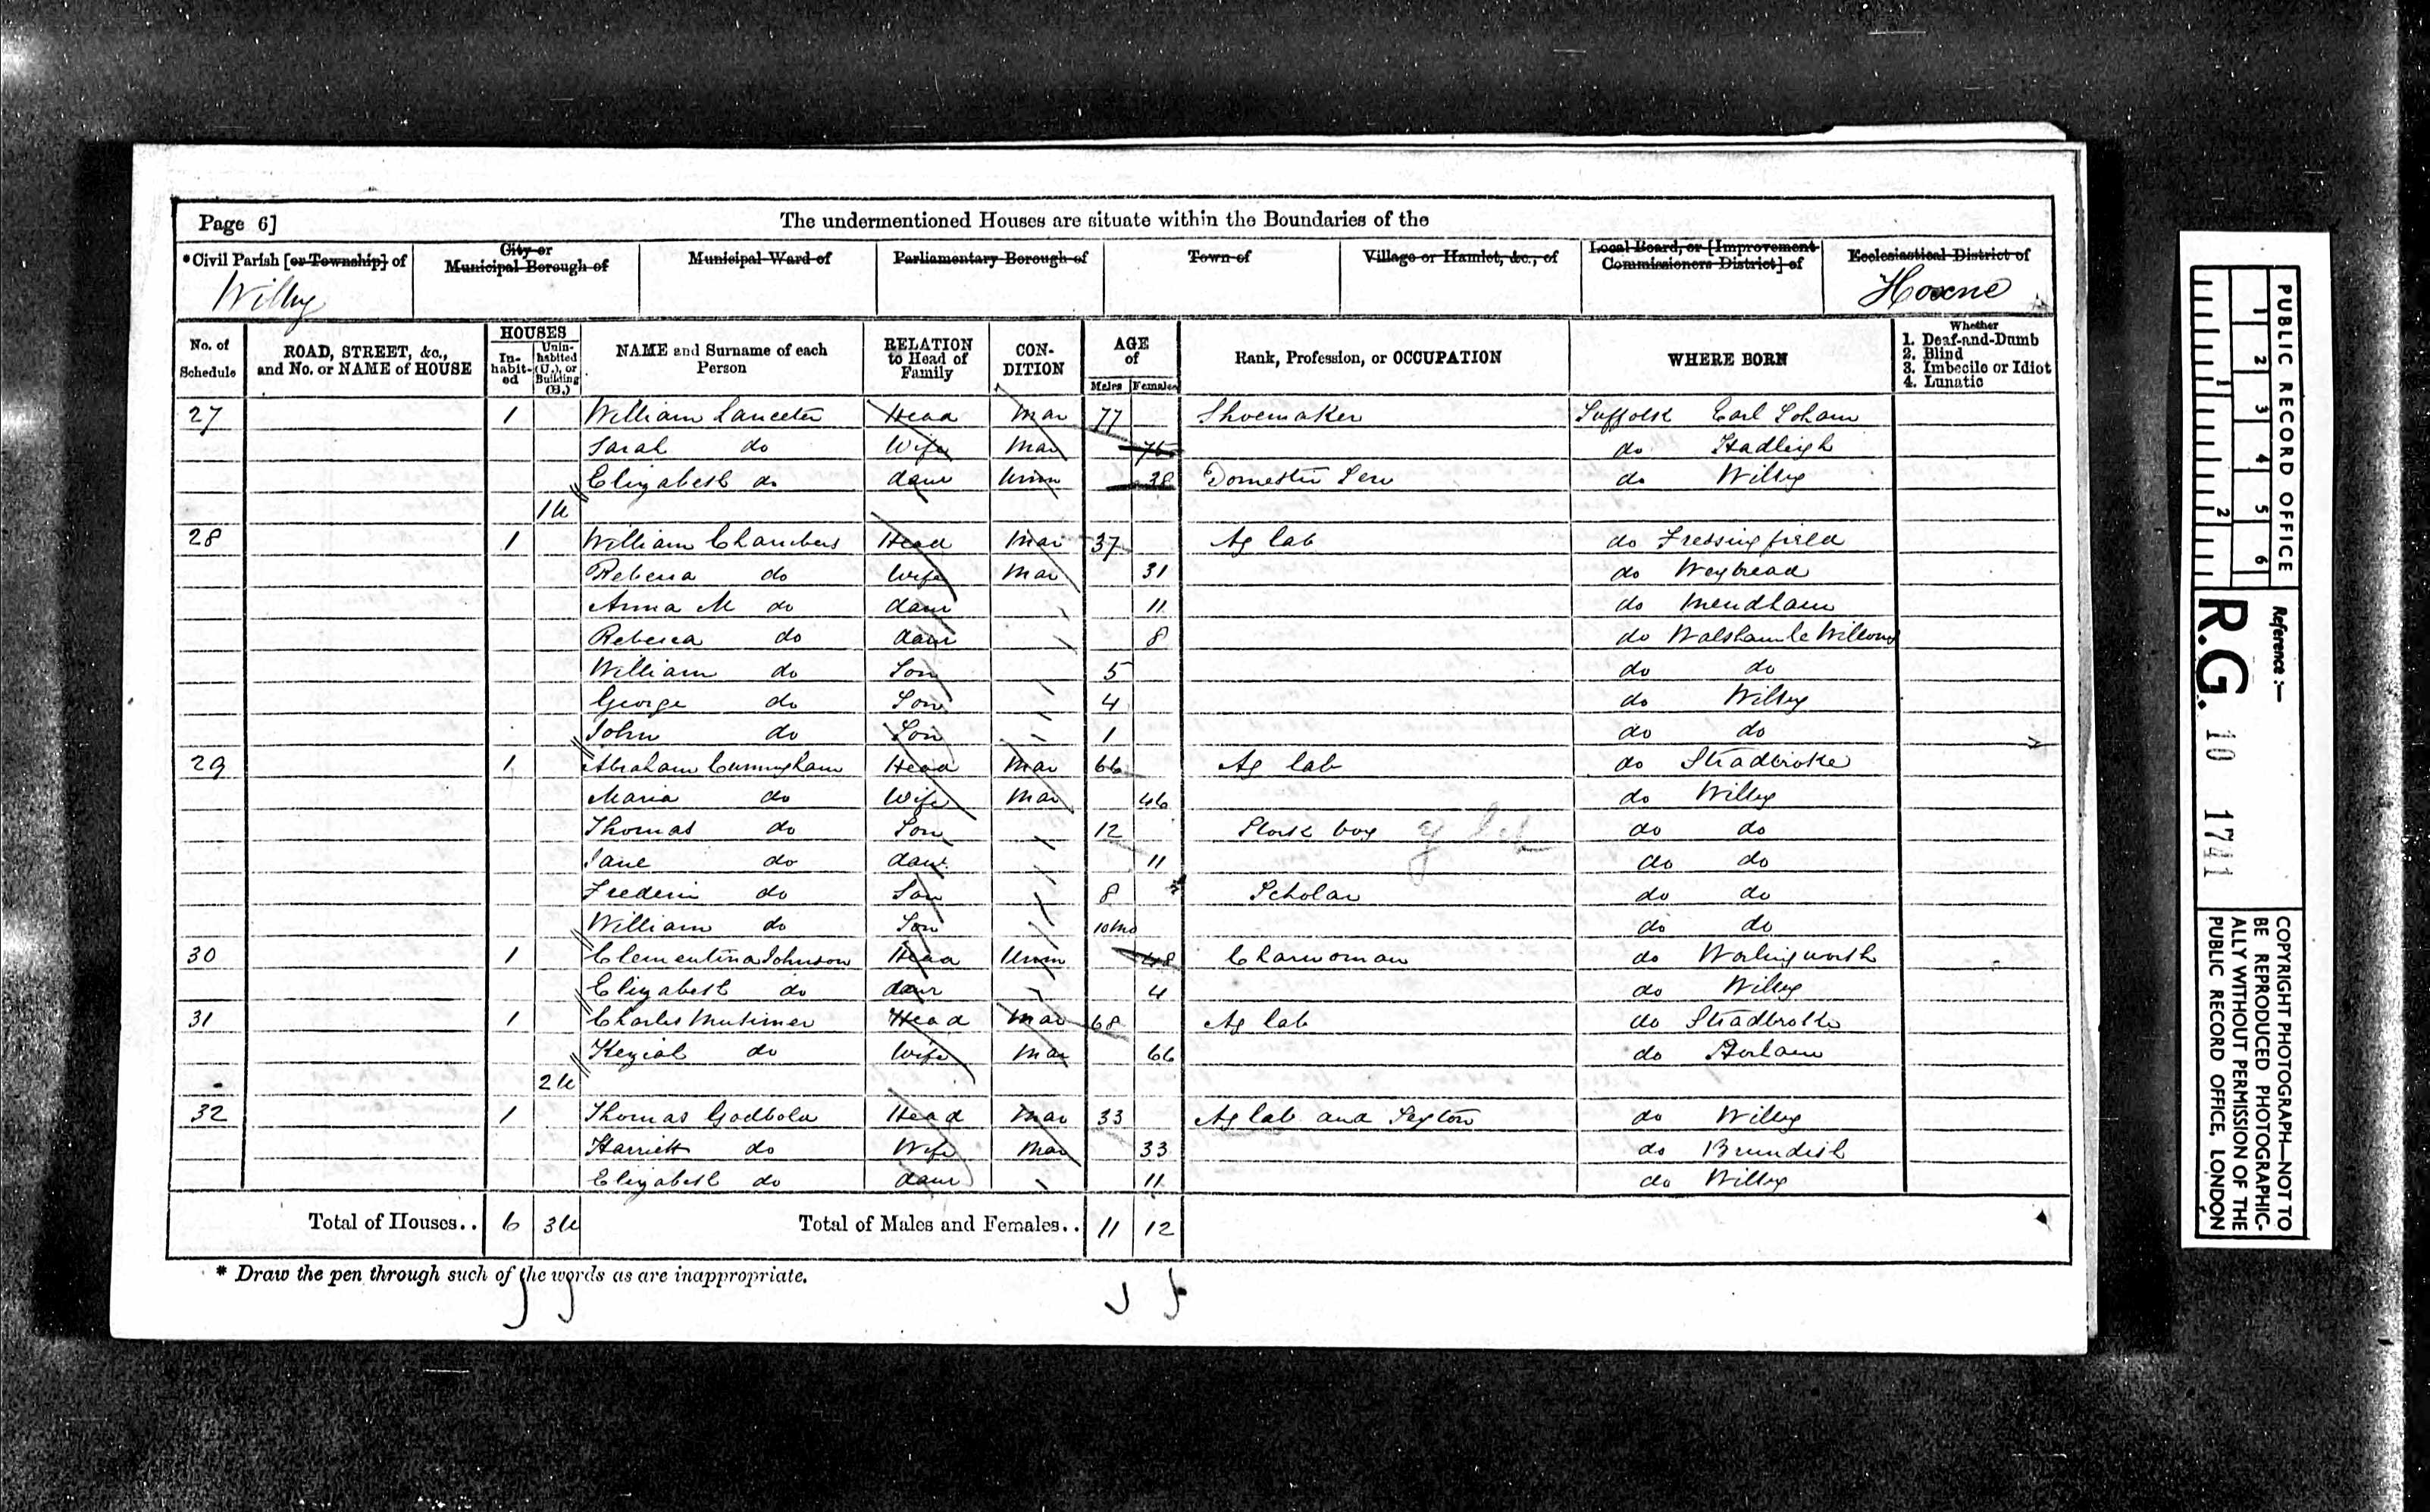 Page 6] The undermentioned Houses are situate within the Boundaries of the
*Civil Parish [or Township] of City or Municipal Borough of Municipal Ward of Parliamentary Borough of Town of Village or Hamlet, &c., of Local Board, or [Improvement Commissioners District] of Ecclesiastical District of
Wilby Hoxne
No. of Schedule ROAD, STREET, &c., and No. or NAME of HOUSE HOUSES In-habit-ed Unin-habited (U.), or Building (B.) NAME and Surname of each Person RELATION to Head of Family CON-DITION AGE of Males Females Rank, Profession, or OCCUPATION WHERE BORN Whether 1. Deaf-and-Dumb 2. Blind 3. Imbecile or Idiot 4. Lunatic
27 1 William Lanceter Head Mar 77 Shoemaker Suffolk Earl Soham
Sarah do Wife Mar 75 do Hadleigh
Elizabeth do daur Unm 38 Domestic Serv do Wilby
1U
28 1 William Chambers Head Mar 37 Ag lab do Fressingfield
Rebecca do Wife Mar 31 do Weybread
Anna M do daur 11 do Mendham
Rebecca do daur 8 do Walsham le Willows
William do Son 5 do do
George do Son 4 do Wilby
John do Son 1 do do
29 1 Abraham Cunningham Head Mar 66 Ag lab do Stradbroke
Maria do Wife Mar 46 do Wilby
Thomas do Son 12 boy do do
Jane do daur 11 do do
Frederic do Son 8 Scholar do do
William do Son 10 Mo do do
30 1 Clementina Johnson Head Unm 48 Charwoman do Worlingworth
Elizabeth do daur 4 do Wilby
31 1 Charles Mutimer Head Mar 68 Ag lab do Stradbroke
Keziah do Wife Mar 66 do
2U
32 1 Thomas Godbold Head Mar 33 Ag lab and Sexton do Wilby
Harriett do Wife Mar 33 do Brundish
Elizabeth do daur 11 do Wilby
Total of Houses.. 6 3U Total of Males and Females.. 11 12
* Draw the pen through such of the words as are inappropriate.
PUBLIC RECORD OFFICE
1 2 3 4 5 6
1 2
Reference :—
R.G. 10 1741
COPYRIGHT PHOTOGRAPH—NOT TO
BE REPRODUCED PHOTOGRAPHIC-
ALLY WITHOUT PERMISSION OF THE
PUBLIC RECORD OFFICE, LONDON